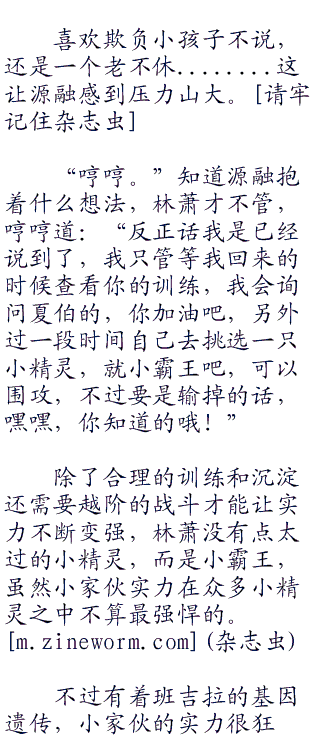 喜欢欺负小孩子不说，
还是一个老不休........这
让源融感到压力山大。[请牢
记住杂志虫]
“哼哼。”知道源融抱
着什么想法，林萧才不管，
哼哼道：“反正话我是已经
说到了，我只管等我回来的
时候查看你的训练，我会询
问夏伯的，你加油吧，另外
过一段时间自己去挑选一只
小精灵，就小霸王吧，可以
围攻，不过要是输掉的话，
嘿嘿，你知道的哦！”
除了合理的训练和沉淀
还需要越阶的战斗才能让实
力不断变强，林萧没有点太
过的小精灵，而是小霸王，
虽然小家伙实力在众多小精
灵之中不算最强悍的。
[m.zineworm.com](杂志虫)
不过有着班吉拉的基因
遗传，小家伙的实力很狂